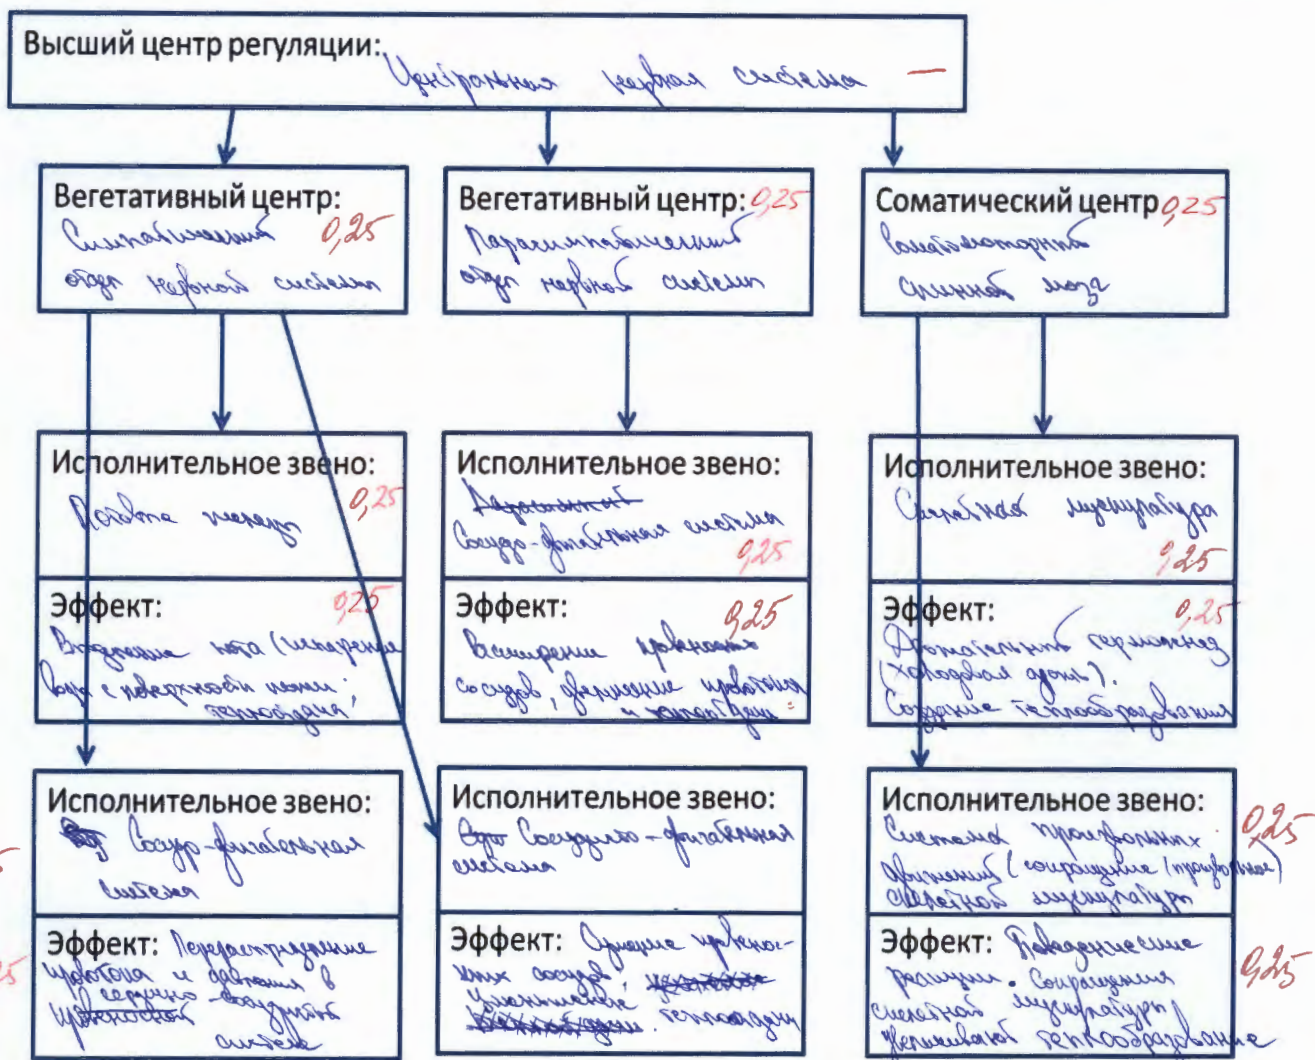 Высший центр регуляции:
Центральная нервная система —
Вегетативный центр:
Симпатический 0,25
отдел нервной системы
Вегетативный центр: 0,25
Парасимпатический
отдел нервной системы
Соматический центр 0,25
Соматомоторный
спинной мозг
Исполнительное звено:
Потовые железы 0,25
Эффект: 0,25
Выделение пота (испарение
воды с поверхности кожи;
теплоотдача)
Исполнительное звено:
Сосудо-двигательная система
0,25
Эффект: 0,25
Расширение кровеносных
сосудов, увеличение кровотока
и
Исполнительное звено:
Скелетная мускулатура
0,25
Эффект: 0,25
термогенез
(холодовая дрожь).
Создание теплообразования
Исполнительное звено:
Сосудо-двигательная
система
Эффект: Перераспределение
кровотока и давления в
сердечно-сосудистой
кровеносной
системе
Исполнительное звено:
Сосудисто-двигательная
система
Эффект: Сужение кровенос-
ных сосудов,
уменьшение
теплоотдачи
Исполнительное звено:
Система произвольных 0,25
движений (сокращение (произвольное)
скелетной мускулатуры
Эффект: Поведенческие
реакции. Сокращения 0,25
скелетной мускулатуры
увеличивают теплообразование